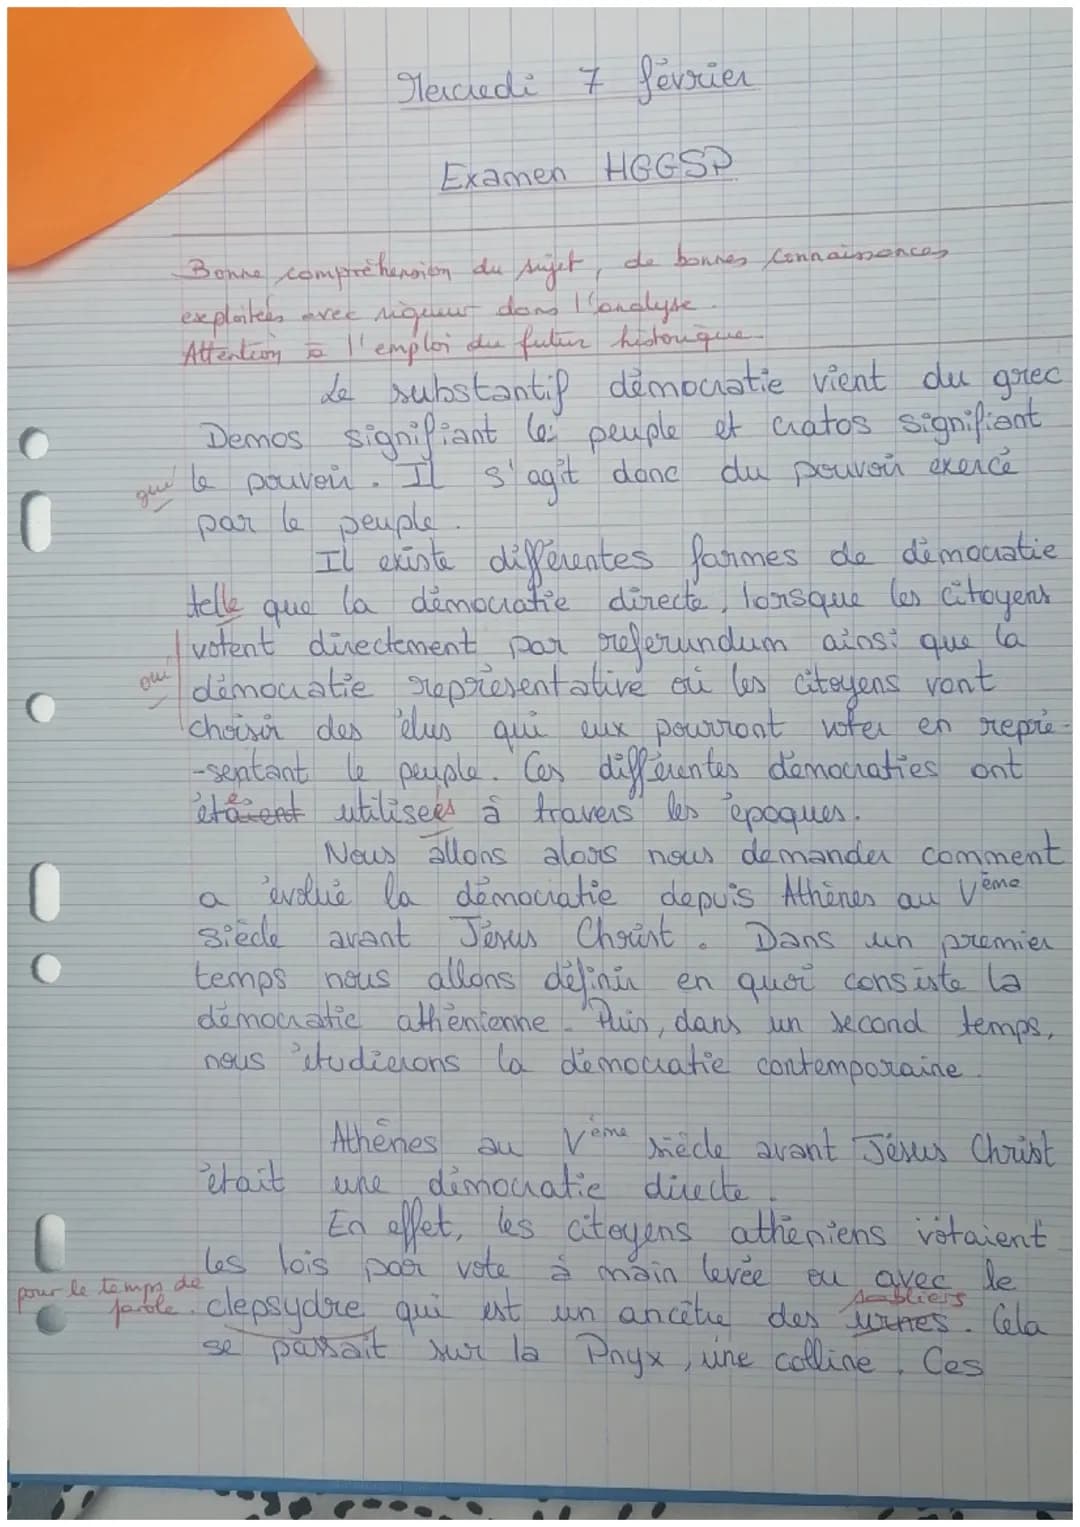 Mercredi 7 février
Examen HGGSP
Bonne compréhension du sujet, de bonnes connaissances
exploitées avec rigueur dans l'analyse.
Attention à l'emploi du futur historique.
Le substantif démocratie vient du grec
Demos signifiant le peuple et cratos signifiant
le pouvoir. Il s'agit donc du pouvoir exercé
par le peuple.
Il existe différentes formes de démocratie
telle que la démocratie directe, lorsque les citoyens
votent directement par referundum ainsi que la
oui démocratie représentative où les citoyens vont
choisir des élus qui eux pourront voter en repré-
-sentant le peuple. Ces différentes démocraties ont
été utilisées à travers les époques.
Nous allons alors nous demander comment
a évolué la démocratie depuis Athènes au Vème
siècle avant Jésus Christ. Dans un premier
temps nous allons définir en quoi consiste la
démocratie athénienne. Puis, dans un second temps,
nous étudierons la démocratie contemporaine.
Athènes au Vème siècle avant Jésus Christ
était une démocratie directe.
En effet, les citoyens athéniens votaient
les lois par vote à main levée ou avec le
pour le temps de parole. sabliers
clepsydre qui est un ancêtre des urnes. Cela
se passait sur la Pnyx, une colline. Ces